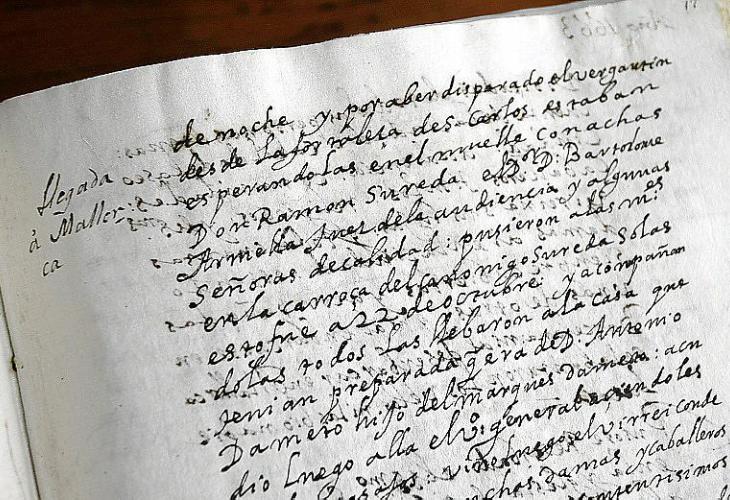 Año 1663
17
llegada
â Maller-
ca
de noche y por aber disparado el vergantin
desde la fortaleta de S Carlos estaban
esperandolas en el muelle con achas
Don Ramon Sureda el Dor D. Bartolome
Juez dela audiencia y algunas
Señoras de calidad: pusieron a las Mes
en la carroça del canonigo Sureda Solas
esto fue a 22 de octubre y acompañan
dolas todos las llebaron a la casa que
tenian preparada q̃ era de D. Antonio
Dameto hijo del marques Dameto: acu
dio luego alla el Vo. general aciendoles
vino luego el virrei conde
damas y caballeros
contentisimos